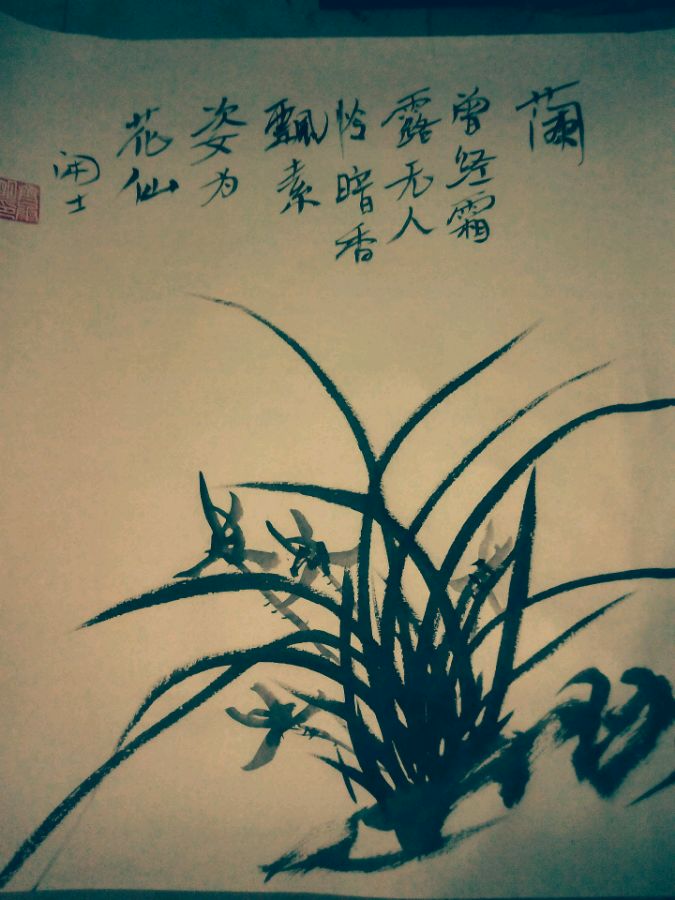 蘭
曾经霜
露无人
怜暗香
飘素
姿为
花仙
闲士